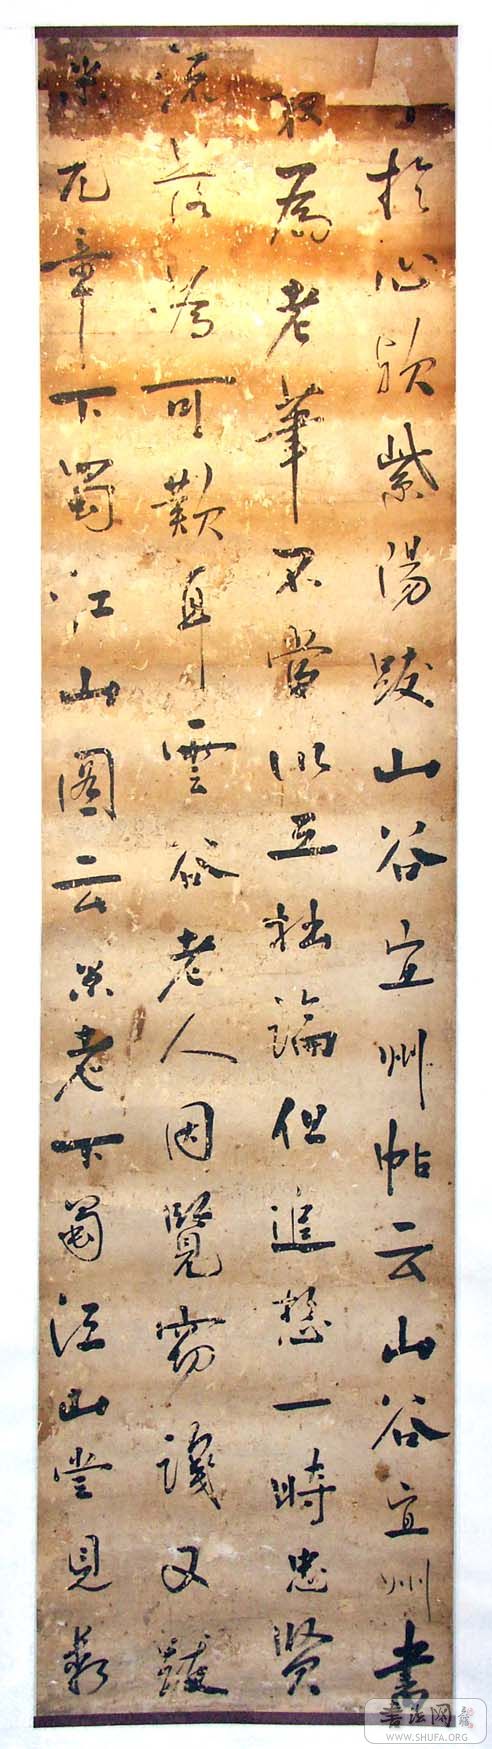 于於心欤紫阳跋山谷宜州帖云山谷宜州書
㝡为老筆不當以工拙論但追想一時忠賢
流落為可歎耳雲谷老人因覽竊識又跋
米元章下蜀江山图云米老下蜀江山嘗見数
書法网
WWW.SHUFA.ORG